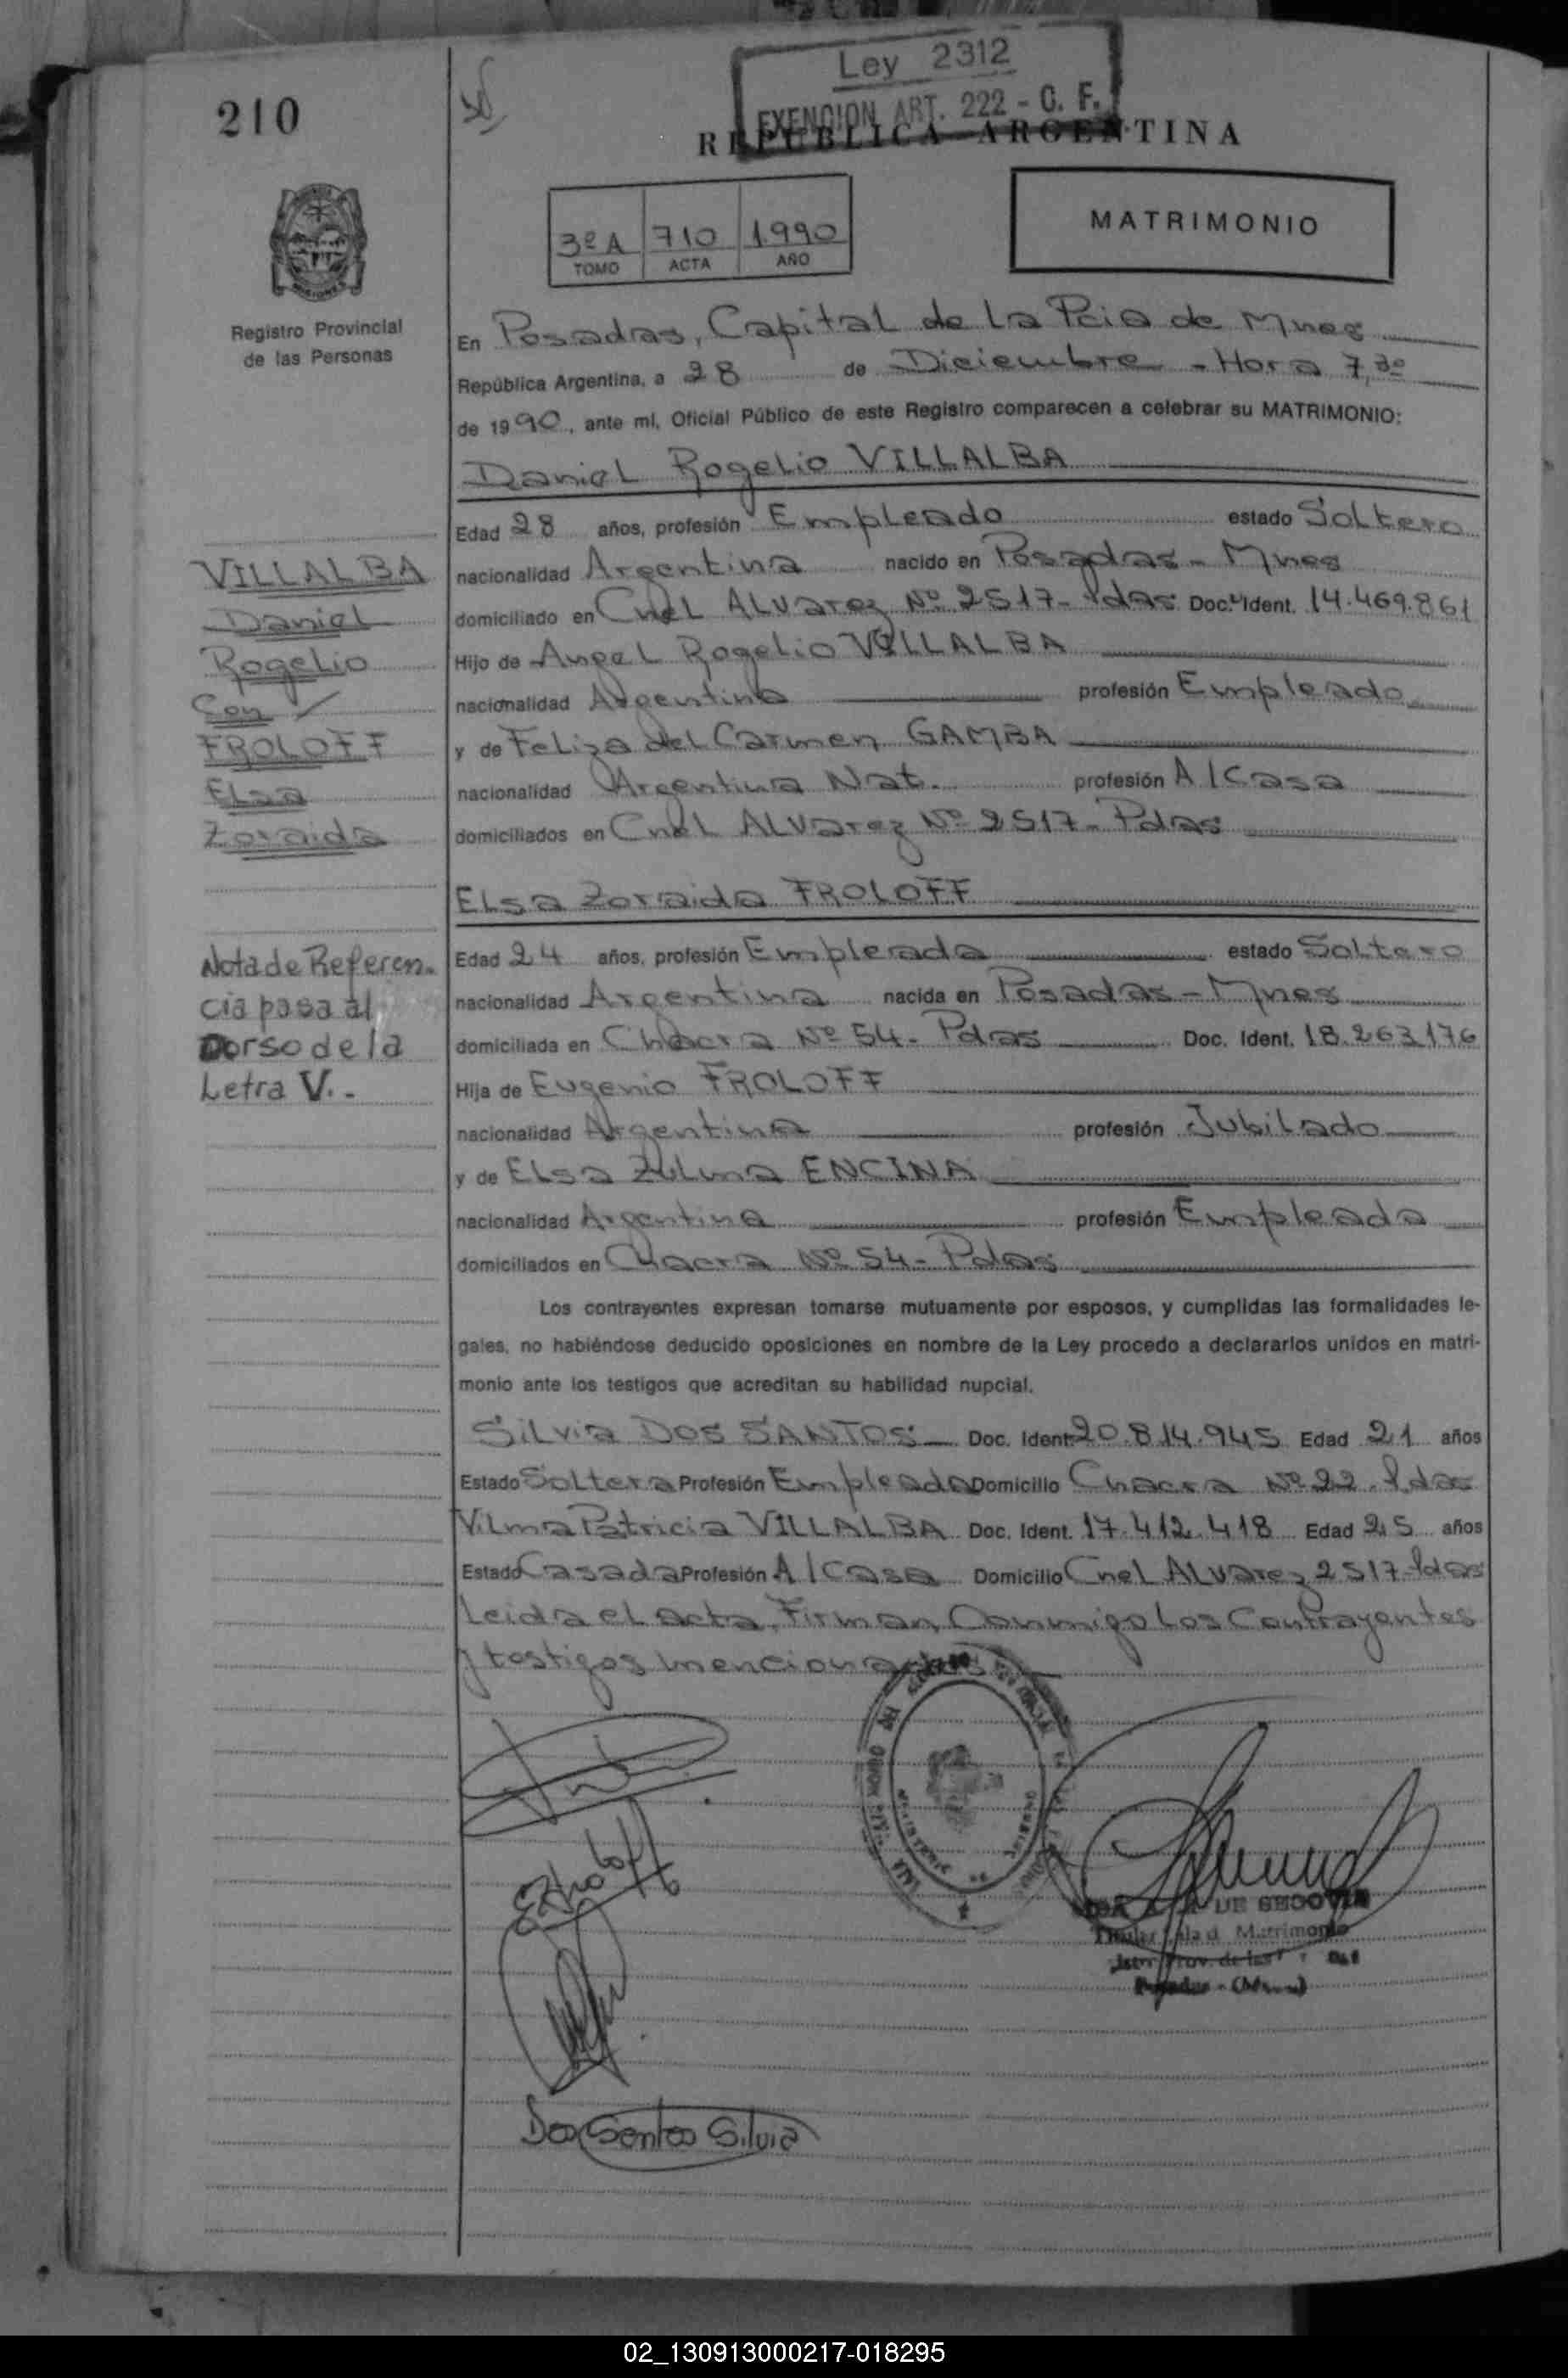 210
Ley 2312
EXENCION ART. 222 - C. F.
REPUBLICA ARGENTINA
3º A 710 1.990
TOMO ACTA AÑO
MATRIMONIO
MISIONES
Registro Provincial
de las Personas
En Posadas, Capital de La Pcia de Mnes
República Argentina, a 28 de Diciembre - Hora 7,30
de 1990, ante mi, Oficial Público de este Registro comparecen a celebrar su MATRIMONIO:
Daniel Rogelio VILLALBA
Edad 28 años, profesión Empleado estado Soltero
nacionalidad Argentina nacido en Posadas - Mnes
domiciliado en Cnel ALVarez Nº 2517 - Pdas Doc. Ident. 14.469.861
Hijo de Angel Rogelio VILLALBA
nacionalidad Argentina profesión Empleado
y de Feliza del Carmen GAMBA
nacionalidad Argentina Nat. profesión A/Casa
domiciliados en Cnel ALVarez Nº 2517 - Pdas
ELsa Zoraida FROLOFF
Edad 24 años, profesión Empleada estado Soltero
nacionalidad Argentina nacida en Posadas - Mnes
domiciliada en Chacra Nº 54 - Pdas Doc. Ident. 18.263.176
Hija de Eugenio FROLOFF
nacionalidad Argentina profesión Jubilado
y de ELsa Zulma ENCINA
nacionalidad Argentina profesión Empleada
domiciliados en Chacra Nº 54 - Pdas
Los contrayentes expresan tomarse mutuamente por esposos, y cumplidas las formalidades le-
gales, no habiéndose deducido oposiciones en nombre de la Ley procedo a declararlos unidos en matri-
monio ante los testigos que acreditan su habilidad nupcial.
Silvia DOS SANTOS Doc. Ident. 20.814.945 Edad 21 años
Estado Soltera Profesión Empleada Domicilio Chacra Nº 22. Pdas
Vilma Patricia VILLALBA Doc. Ident. 17.412.418 Edad 25 años
Estado Casada Profesión A/Casa Domicilio Cnel ALVarez 2517 - Pdas
Leida el acta, Firman, Conmigo Los Contrayentes
y testigos mencionados
VILLALBA
Daniel
Rogelio
Con
FROLOFF
ELsa
Zoraida
Nota de Referen-
cia pasa al
Dorso de la
Letra V. -
EZFroloff
DE SEGOVIA
Titular Sala d Matrimonio
Prov. de las
Posadas - (Mnes)
Dos Santos Silvia
02_130913000217-018295